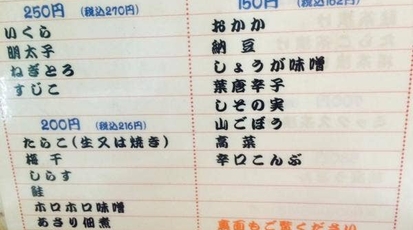 250円 (税込270円)
いくら
明太子
ねぎとろ
すじこ
200円 (税込216円)
たらこ(生又は焼き)
梅干
しらす
鮭
ホロホロ味噌
あさり佃煮
150円 (税込162円)
おかか
納豆
しょうが味噌
葉唐辛子
しその実
山ごぼう
高菜
辛口こんぶ
裏面もご覧ください